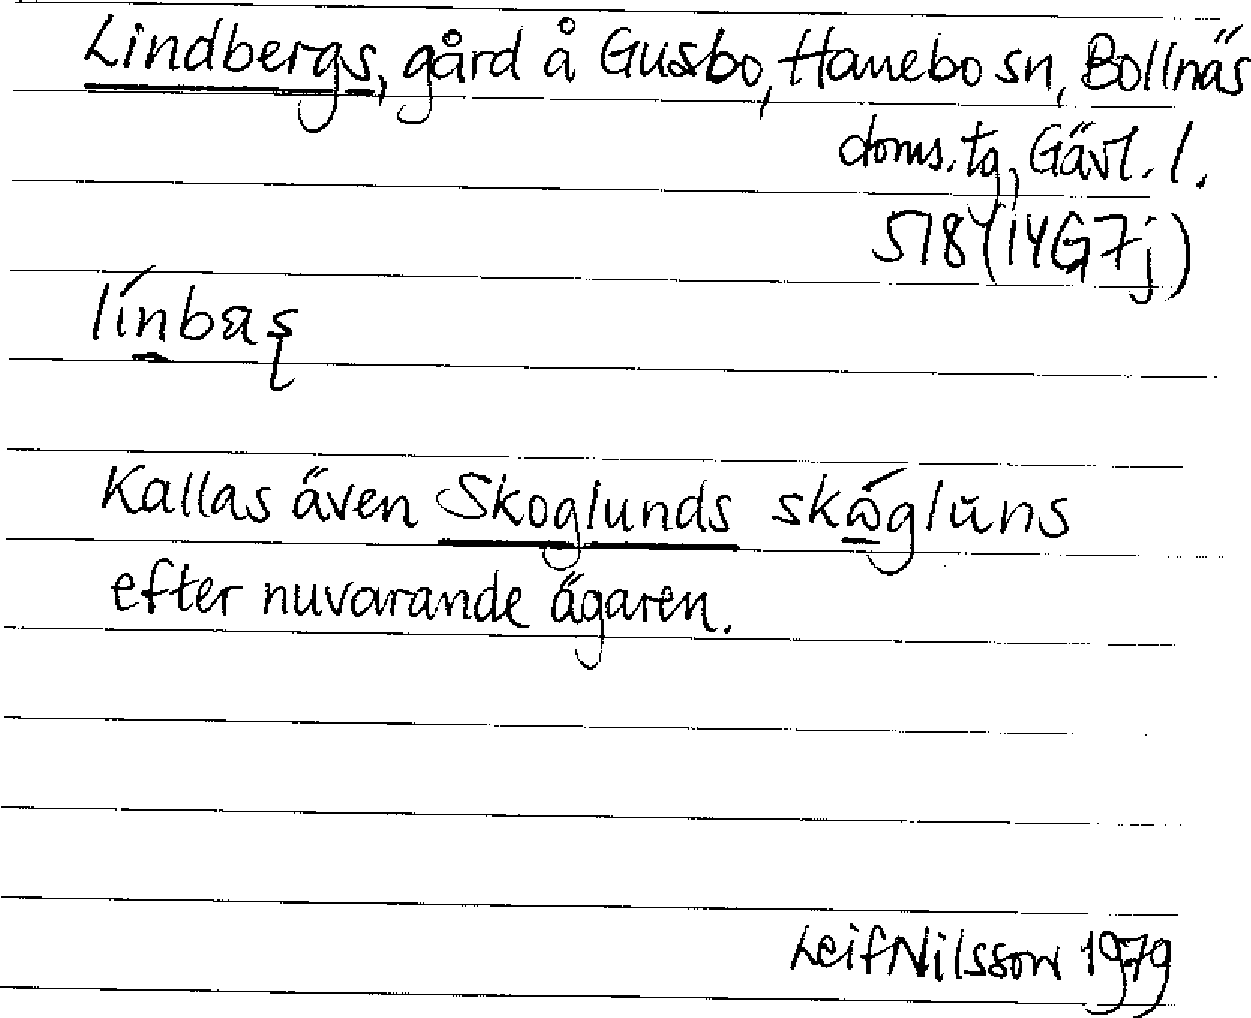 Lindbergs, gård å Gusbo, Hanebo sn, Bollnäs
doms. tg, Gävl. l.
518 (14G7j)
línbæʂ
Kallas även Skoglunds skóglŭns
efter nuvarande ägaren.
Leif Nilsson 1979